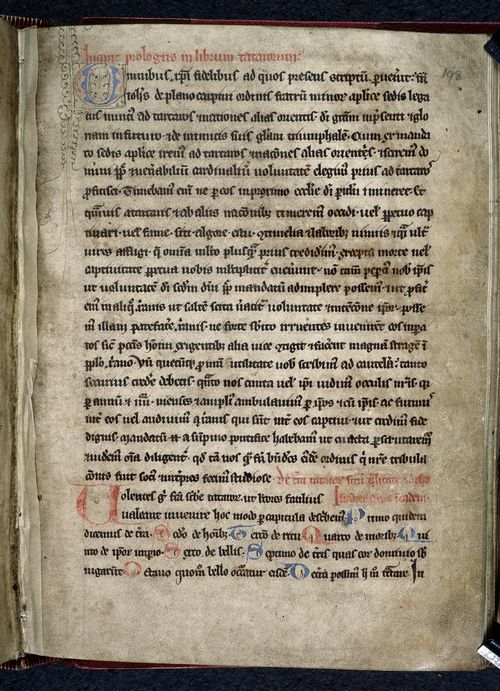 Incipit prologus in librum tartarorum:
198
Omnibus xp̄i fidelibus ad quos presens scriptū puen̄it: fr̄
ioh̄s de plano carpini ordinis fratrū minor aplice sedis lega
tus nunciꝰ ad tartaros ⁊ nationes alias orientis dī grām in p̄senti ⁊ glo
riam in futuro ⁊ de inimicis suis gl̄am triumphalē. Cum ex manda
to sedis aplice iremꝰ ad tartaros ⁊ nacōnes alias orientes ⁊ sciremꝰ do
mini pp̄ ⁊ uen̄abilium cardinaliū voluntatē elegimꝰ prius ad tartaros
proficisci. Timebamꝰ en̄ ne per eos in proximo ecclīe dī pīculū immineret. Et
qūuis a tartaris ⁊ ab aliis nacōnibꝫ timeremꝰ occidi. uel ppetuo cap
tiuari. uel fame. siti. algore. estu. ⁊tumelia ⁊ laboribꝫ nimiis ⁊ q̄i ultra
uires affligi. que om̄ia multo plusquā prius credidimꝰ excepta morte uel
captiuitate ppetua nobis multipliciter euenerunt. nō tam̄ pepercimꝰ nobis ip̄is
ut voluntatē dī scdm dn̄i pp̄ mandatū adimplere possemꝰ. ⁊ ut proficere
mꝰ in aliquo xr̄anis ut saltem scita ueraciter voluntate ⁊ intencōne ipor̄. possemꝰ
illam patefacere xr̄anis. ne forte subito irruentes inuenirent eos inpa
ratos sicut peccatis hom̄ exigentibꝫ alia uice ⁊tigit ⁊ fecerunt magnā stragē in
pplo xr̄ano. Vn̄ quecunqꝫ pro uestra utilitate uobis scribimꝰ ad cautelā. tanto
securius credere debetis. quanto nos cuncta uel ip̄i uidimꝰ oculis nr̄is. qui
per annū ⁊ iiii. menses ⁊ amplius ambulauimꝰ per ip̄os ⁊ cū ip̄is ac fuimꝰ
inter eos uel audiuimꝰ a xr̄anis qui sunt inter eos captiui ⁊ ut credimꝰ fide
dignis. mandatū en̄ a supmo pontifice habebamꝰ ut cuncta pscrutaremur
⁊ uideremꝰ om̄ia diligenter. quod tam nos quam frater benedictus eiusdem ordinis qui nostre tribulacōnis
fuit socius ⁊ interpres fecimꝰ studiose. De terra tartaror situ qualitate ⁊
Volentes igitur facta scribere tartaror. ut lectores facilius
ualeant inuenire hoc modo per capitula describemꝰ. Primo quidem
dicemus de terra. Secdo de hoībꝫ. Tercō de ritu. Quarto de moribꝫ. Qui
nto de ipor imperio. Sexto de bellis. Septimo de terris quas eor dominio sub
iugarunt. Octauo quomodo bello occurratur eisdem. De terra possumꝰ hoc modo tractare. In